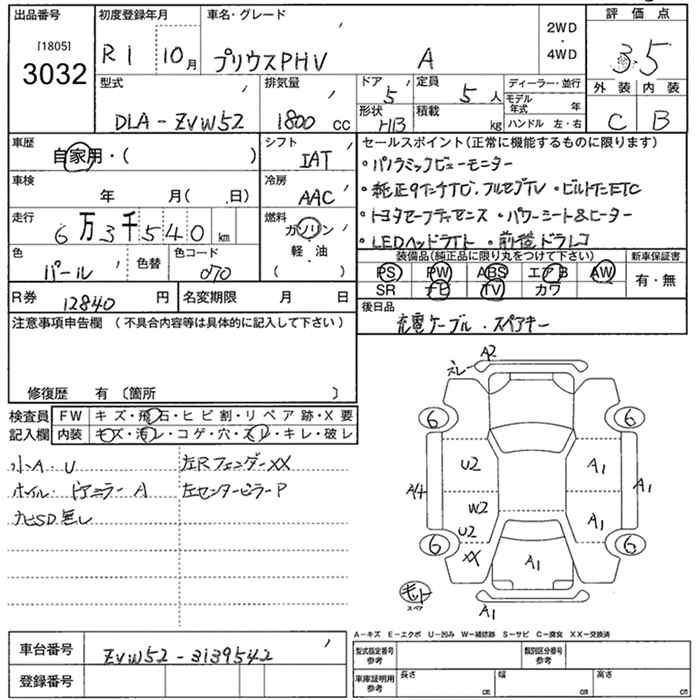 出品番号
[1805]
3032
初度登録年月
R1 10月
車名・グレード
プリウスPHV A
2WD
・
4WD
評価点
3.5
外装 内装
C B
型式
DLA-ZVW52
排気量
1800 cc
ドア 5
定員 5人
形状 HB
積載 kg
ディーラー・並行
モデル年式 年
ハンドル 左・右
車歴
自家用・( )
シフト
IAT
車検
年 月( . 日)
冷房
AAC
走行
6万3千540km
燃料
ガソリン
軽・油
( )
色
パール
色替
色コード
070
R券 12840円
名変期限 月 日
セールスポイント(正常に機能するものに限ります)
・パノラミックビューモニター
・純正9インチナビ、フルセグTV ・ビルトインETC
・トヨタセーフティセンス ・パワーシート&ヒーター
・LEDヘッドライト ・前後ドラレコ
装備品(純正品に限り丸をつけて下さい)
PS PW ABS エアB AW
SR ナビ TV カワ
新車保証書
有・無
後日品
充電ケーブル・スペアキー
注意事項申告欄 (不具合内容等は具体的に記入して下さい)
修復歴 有 〔箇所 〕
検査員記入欄
FW キズ・飛石・ヒビ割・リペア跡・X要
内装 キズ・汚レ・コゲ・穴・スレ・キレ・破レ
小A・U
左Rフェンダー XX
ホイル・ドアミラー A
左センターピラーP
ナビSD無し
スレ A2
6 6
U2 A1
A4 A1
W2
U2 A1
6 6
XX A1
キット
スペア
A1
A-キズ E-エクボ U-凹み W-補修跡 S-サビ C-腐食 XX-交換済
車台番号 ZVW52-3139542
登録番号
型式指定番号参考
類別区分番号参考
車庫証明用参考
長さ cm 幅 cm 高さ cm